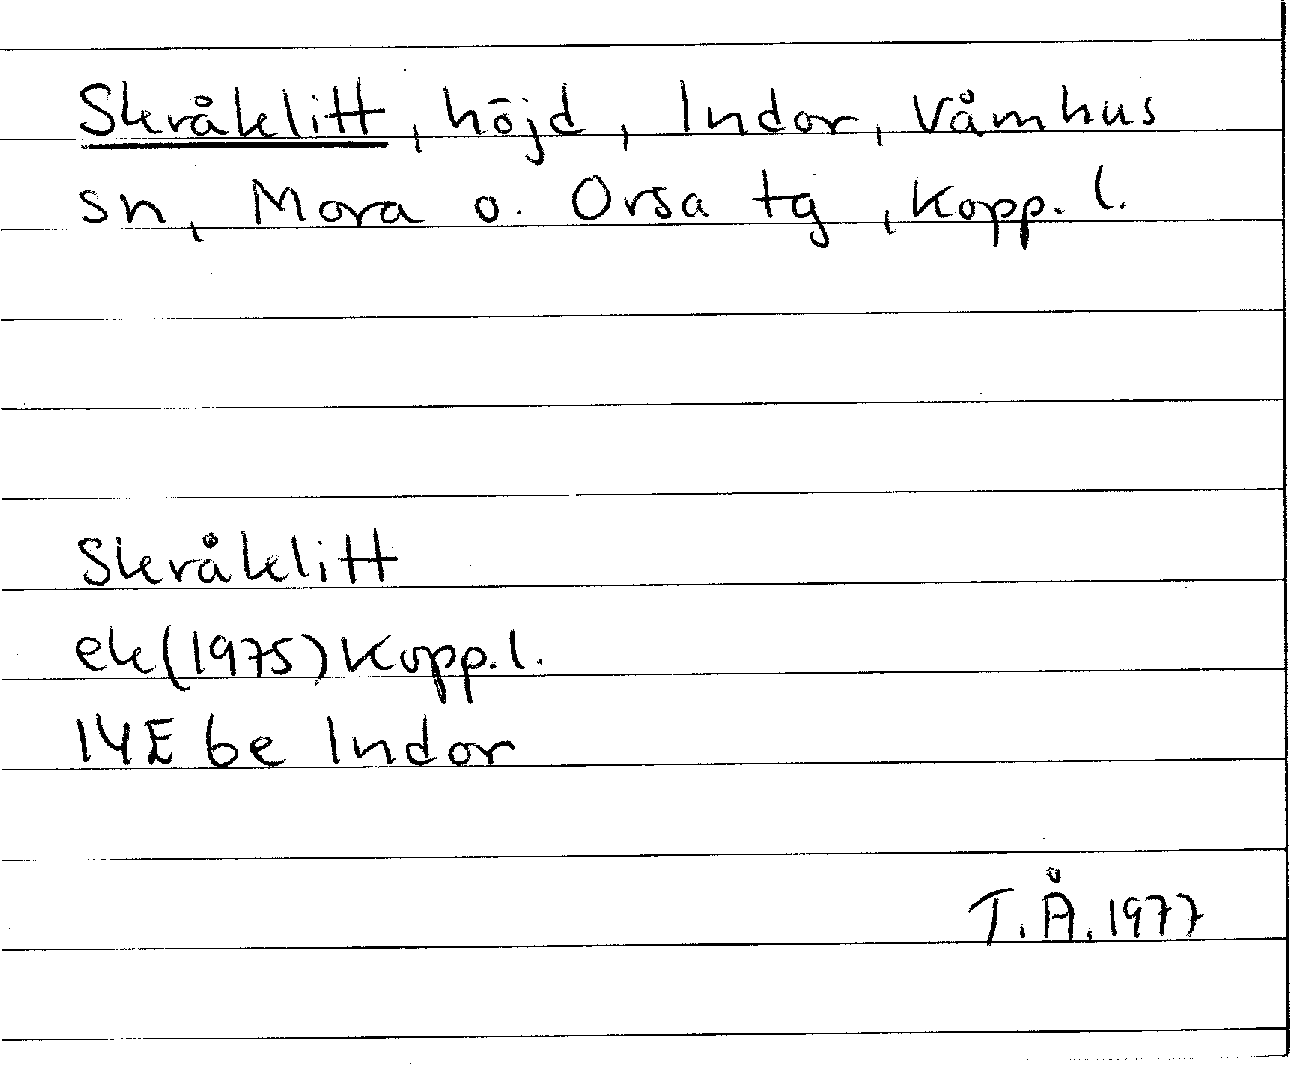 Skråklitt, höjd, Indor, Våmhus
sn, Mora o. Orsa tg, Kopp. l.
Skråklitt
ek(1975) Kopp.l.
14E be Indor
T.Å.1977